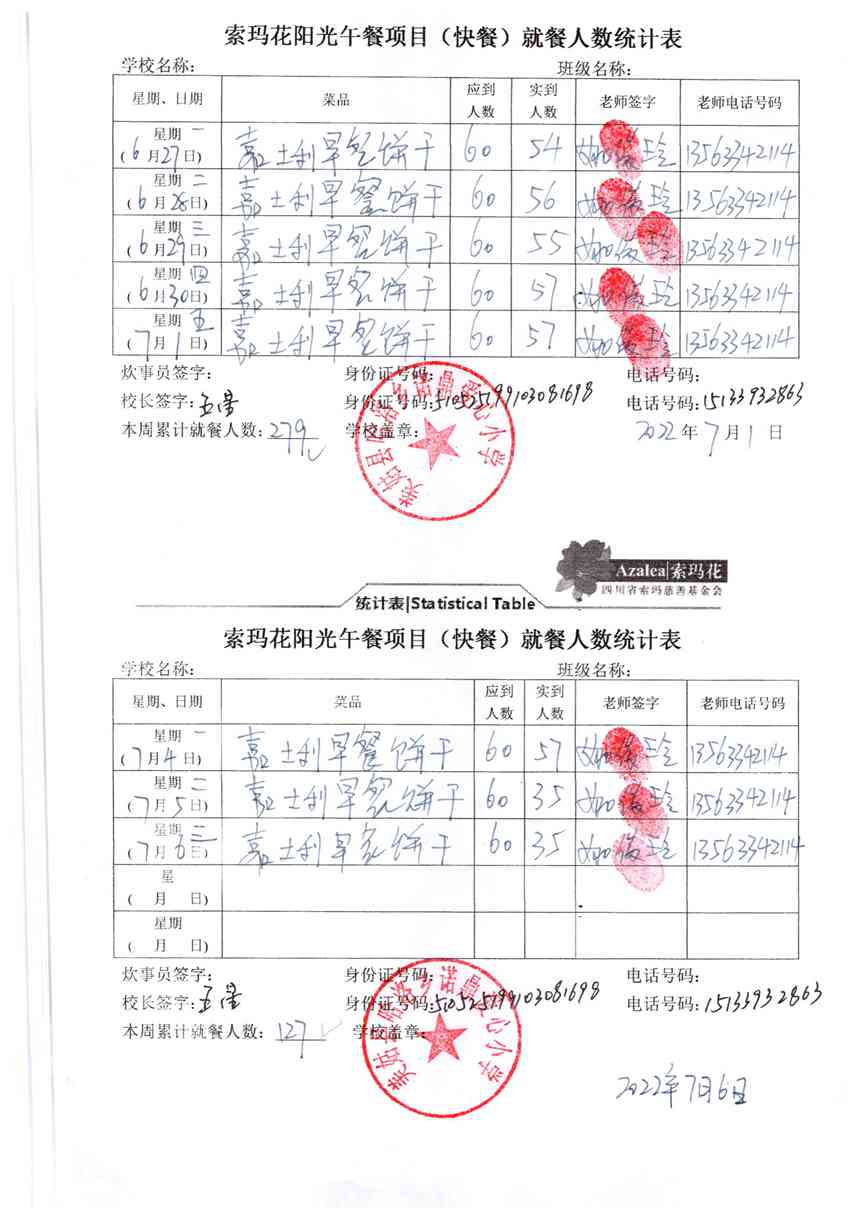 索玛花阳光午餐项目（快餐）就餐人数统计表
学校名称： 班级名称：
星期、日期 菜品 应到人数 实到人数 老师签字 老师电话号码
星期一 (6月27日) 嘉士利早餐饼干 60 54 13563342114
星期二 (6月28日) 嘉士利早餐饼干 60 56 13563342114
星期三 (6月29日) 嘉士利早餐饼干 60 55 13563342114
星期四 (6月30日) 嘉士利早餐饼干 60 57 13563342114
星期五 (7月1日) 嘉士利早餐饼干 60 57 13563342114
炊事员签字： 身份证号码： 电话号码：
校长签字： 身份证号码：510525199103081698 电话号码：15133932863
本周累计就餐人数：279 学校盖章： 2022年7月1日
Azalea|索玛花
四川省索玛慈善基金会
统计表|Statistical Table
索玛花阳光午餐项目（快餐）就餐人数统计表
学校名称： 班级名称：
星期、日期 菜品 应到人数 实到人数 老师签字 老师电话号码
星期一 (7月4日) 嘉士利早餐饼干 60 57 13563342114
星期二 (7月5日) 嘉士利早餐饼干 60 35 13563342114
星期三 (7月6日) 嘉士利早餐饼干 60 35 13563342114
星 ( 月 日)
星期 ( 月 日)
炊事员签字： 身份证号码： 电话号码：
校长签字： 身份证号码：510525199103081698 电话号码：15133932863
本周累计就餐人数：127 学校盖章：
2022年7月6日